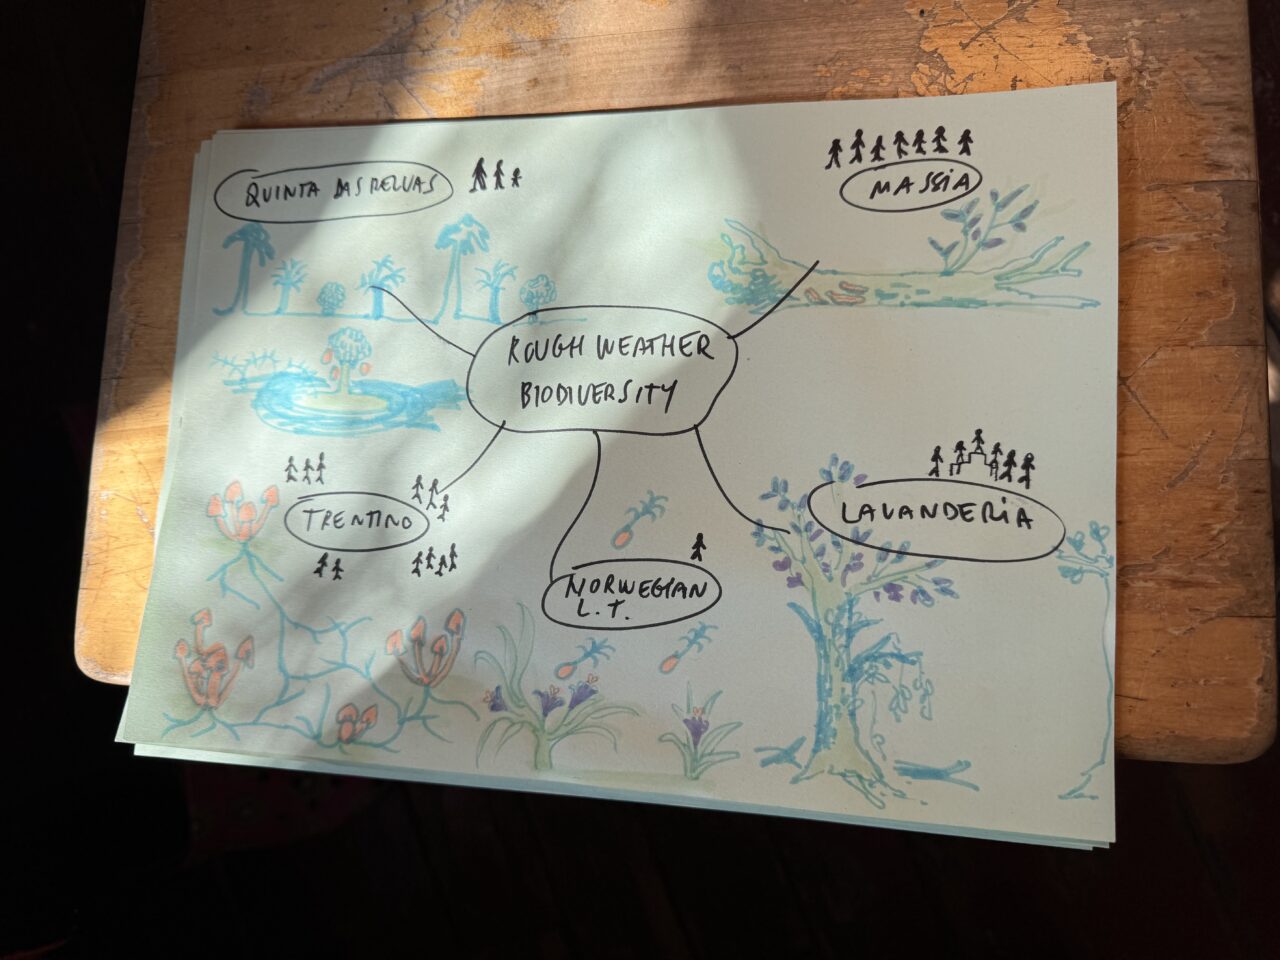 QUINTA DAS RELVAS
MASSIA
ROUGH WEATHER
BIODIVERSITY
TRENTINO
LAVANDERIA
NORWEGIAN
L. T.